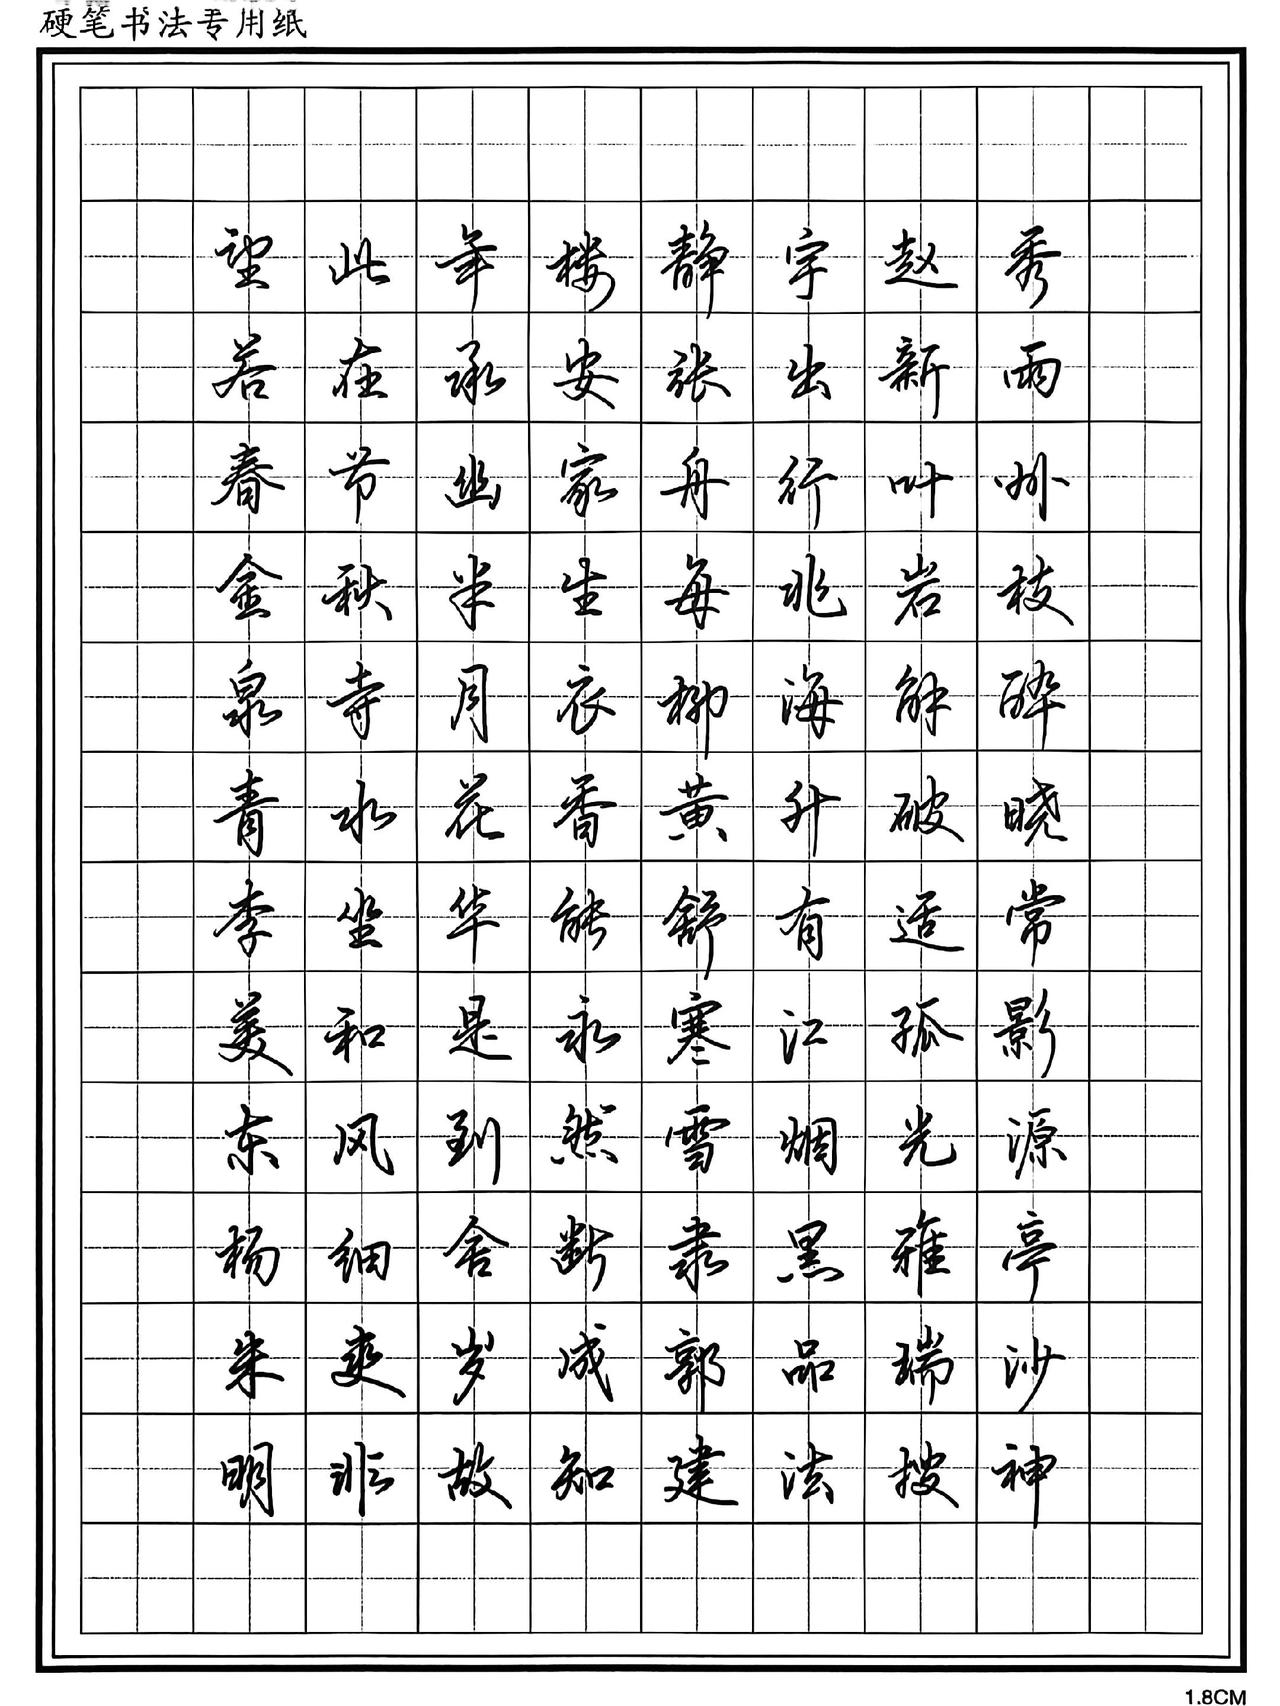 硬笔书法专用纸
望此年楼静宇赵秀
若在承安张出新雨
春节幽家舟行叶州
金秋半生每兆岩枝
泉寺月衣柳海解醉
青水花香黄升破晓
李坐华能舒有适常
美和是永寒江孤影
东风到然雪烟光源
杨细舍断隶黑雅亭
朱爽岁成郭品瑞沙
明非故知建法搜神
1.8CM